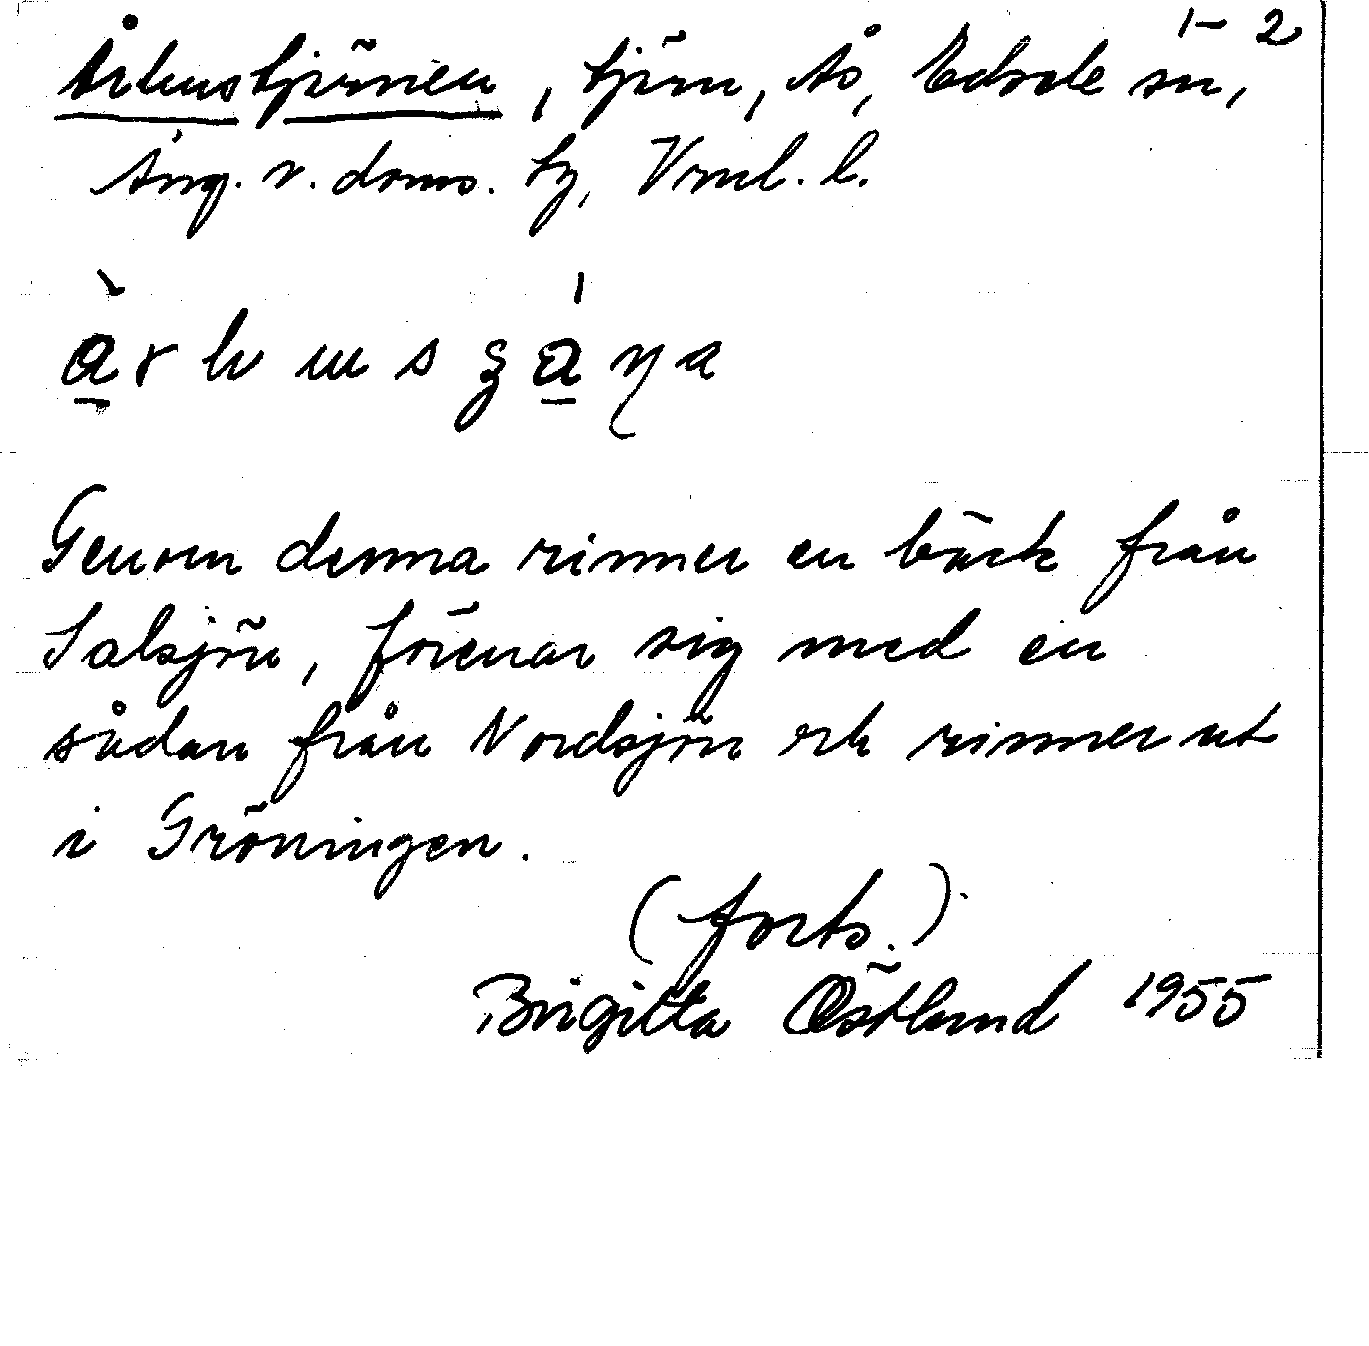 1-2
Århustjärnen, tjärn, Ås, Edsele sn,
Ång. v. doms. tg, Vrnl. l.
Genom denna rinner en bäck från
Salsjön, förenar sig med en
sådan från Nordsjön och rinner ut
i Gröningen.
(forts.)
Birgitta Östlund 1955